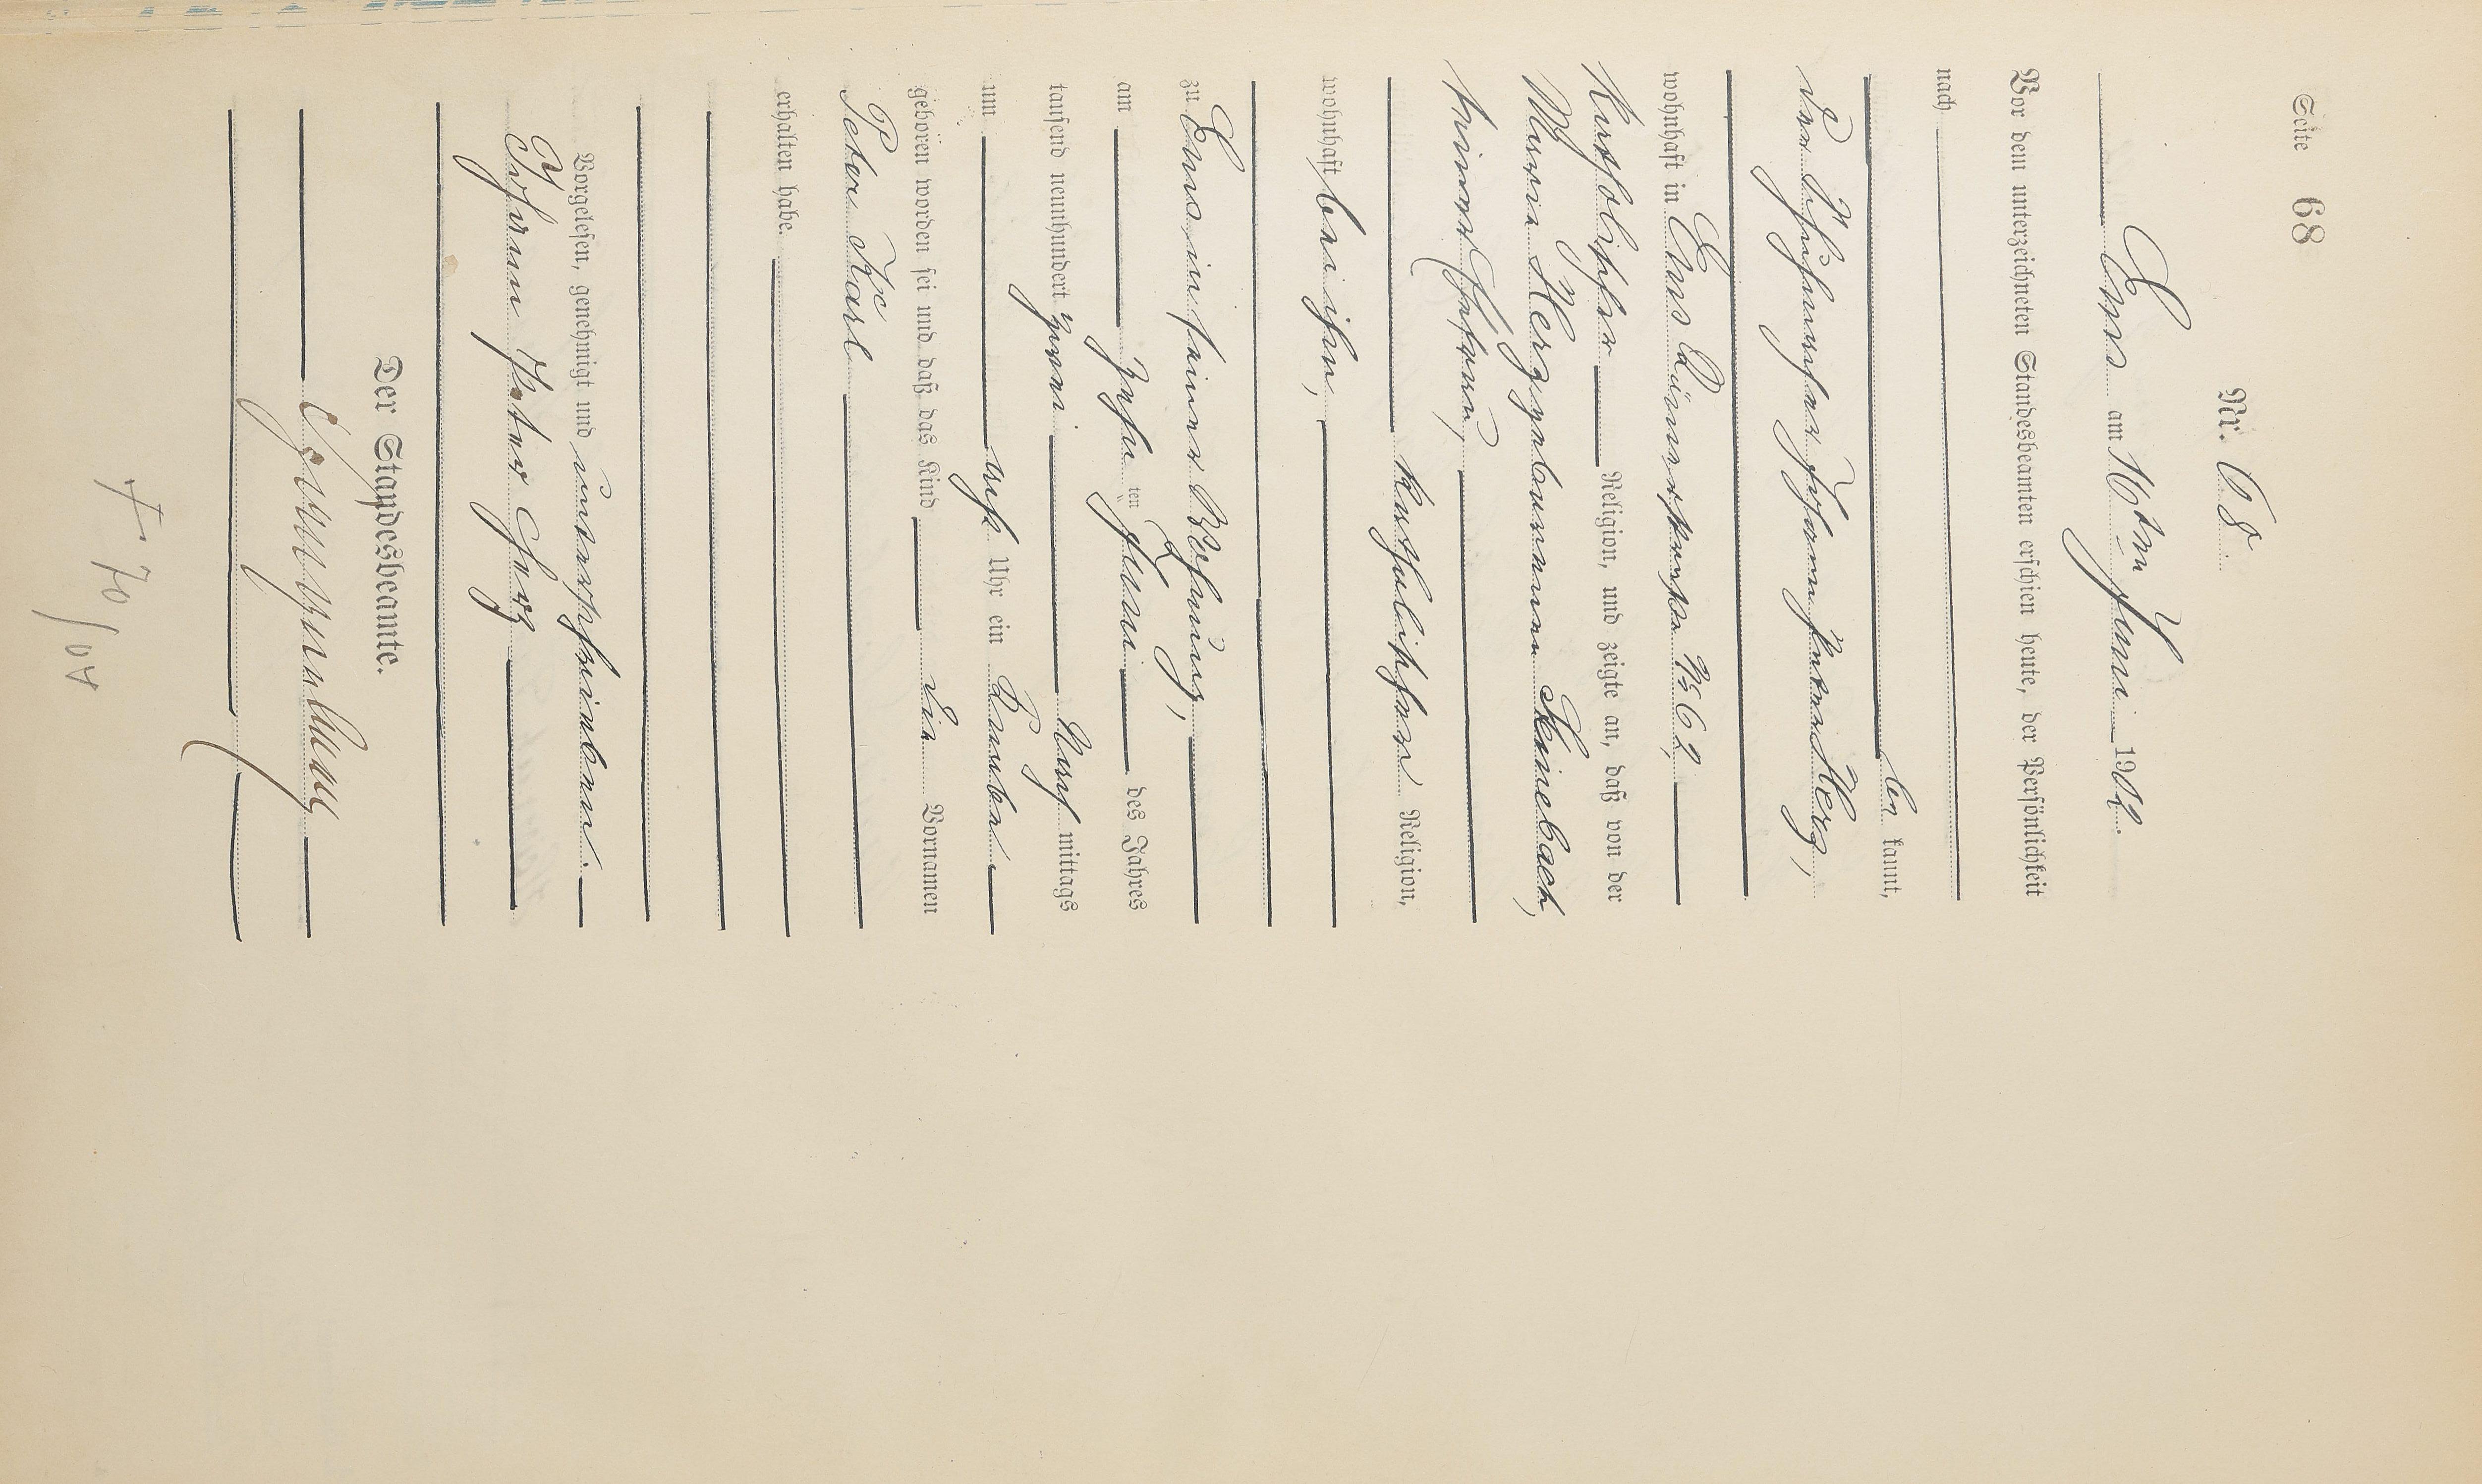 Seite 68
Nr. 68.
Ems am 16ten Juni 1902.
Vor dem unterzeichneten Standesbeamten erschien heute, der Persönlichkeit
nach
be kannt,
der Schuhmacher Johann Peter Herz,
wohnhaft in Ems Römerstraße No 62,
katholischer Religion, und zeigte an, daß von der
Maria Herz geborenen Steinebach,
seiner Ehefrau,
katholischer Religion,
wohnhaft bei ihm,
zu Ems in seiner Wohnung,
am zehn ten Juni des Jahres
tausend neunhundert zwei Nach mittags
um acht Uhr ein Knabe
geboren worden sei und daß das Kind die Vornamen
Peter Karl
erhalten habe.
Vorgelesen, genehmigt und unterschrieben.
Johann Peter Herz
Der Standesbeamte.
† 70/02